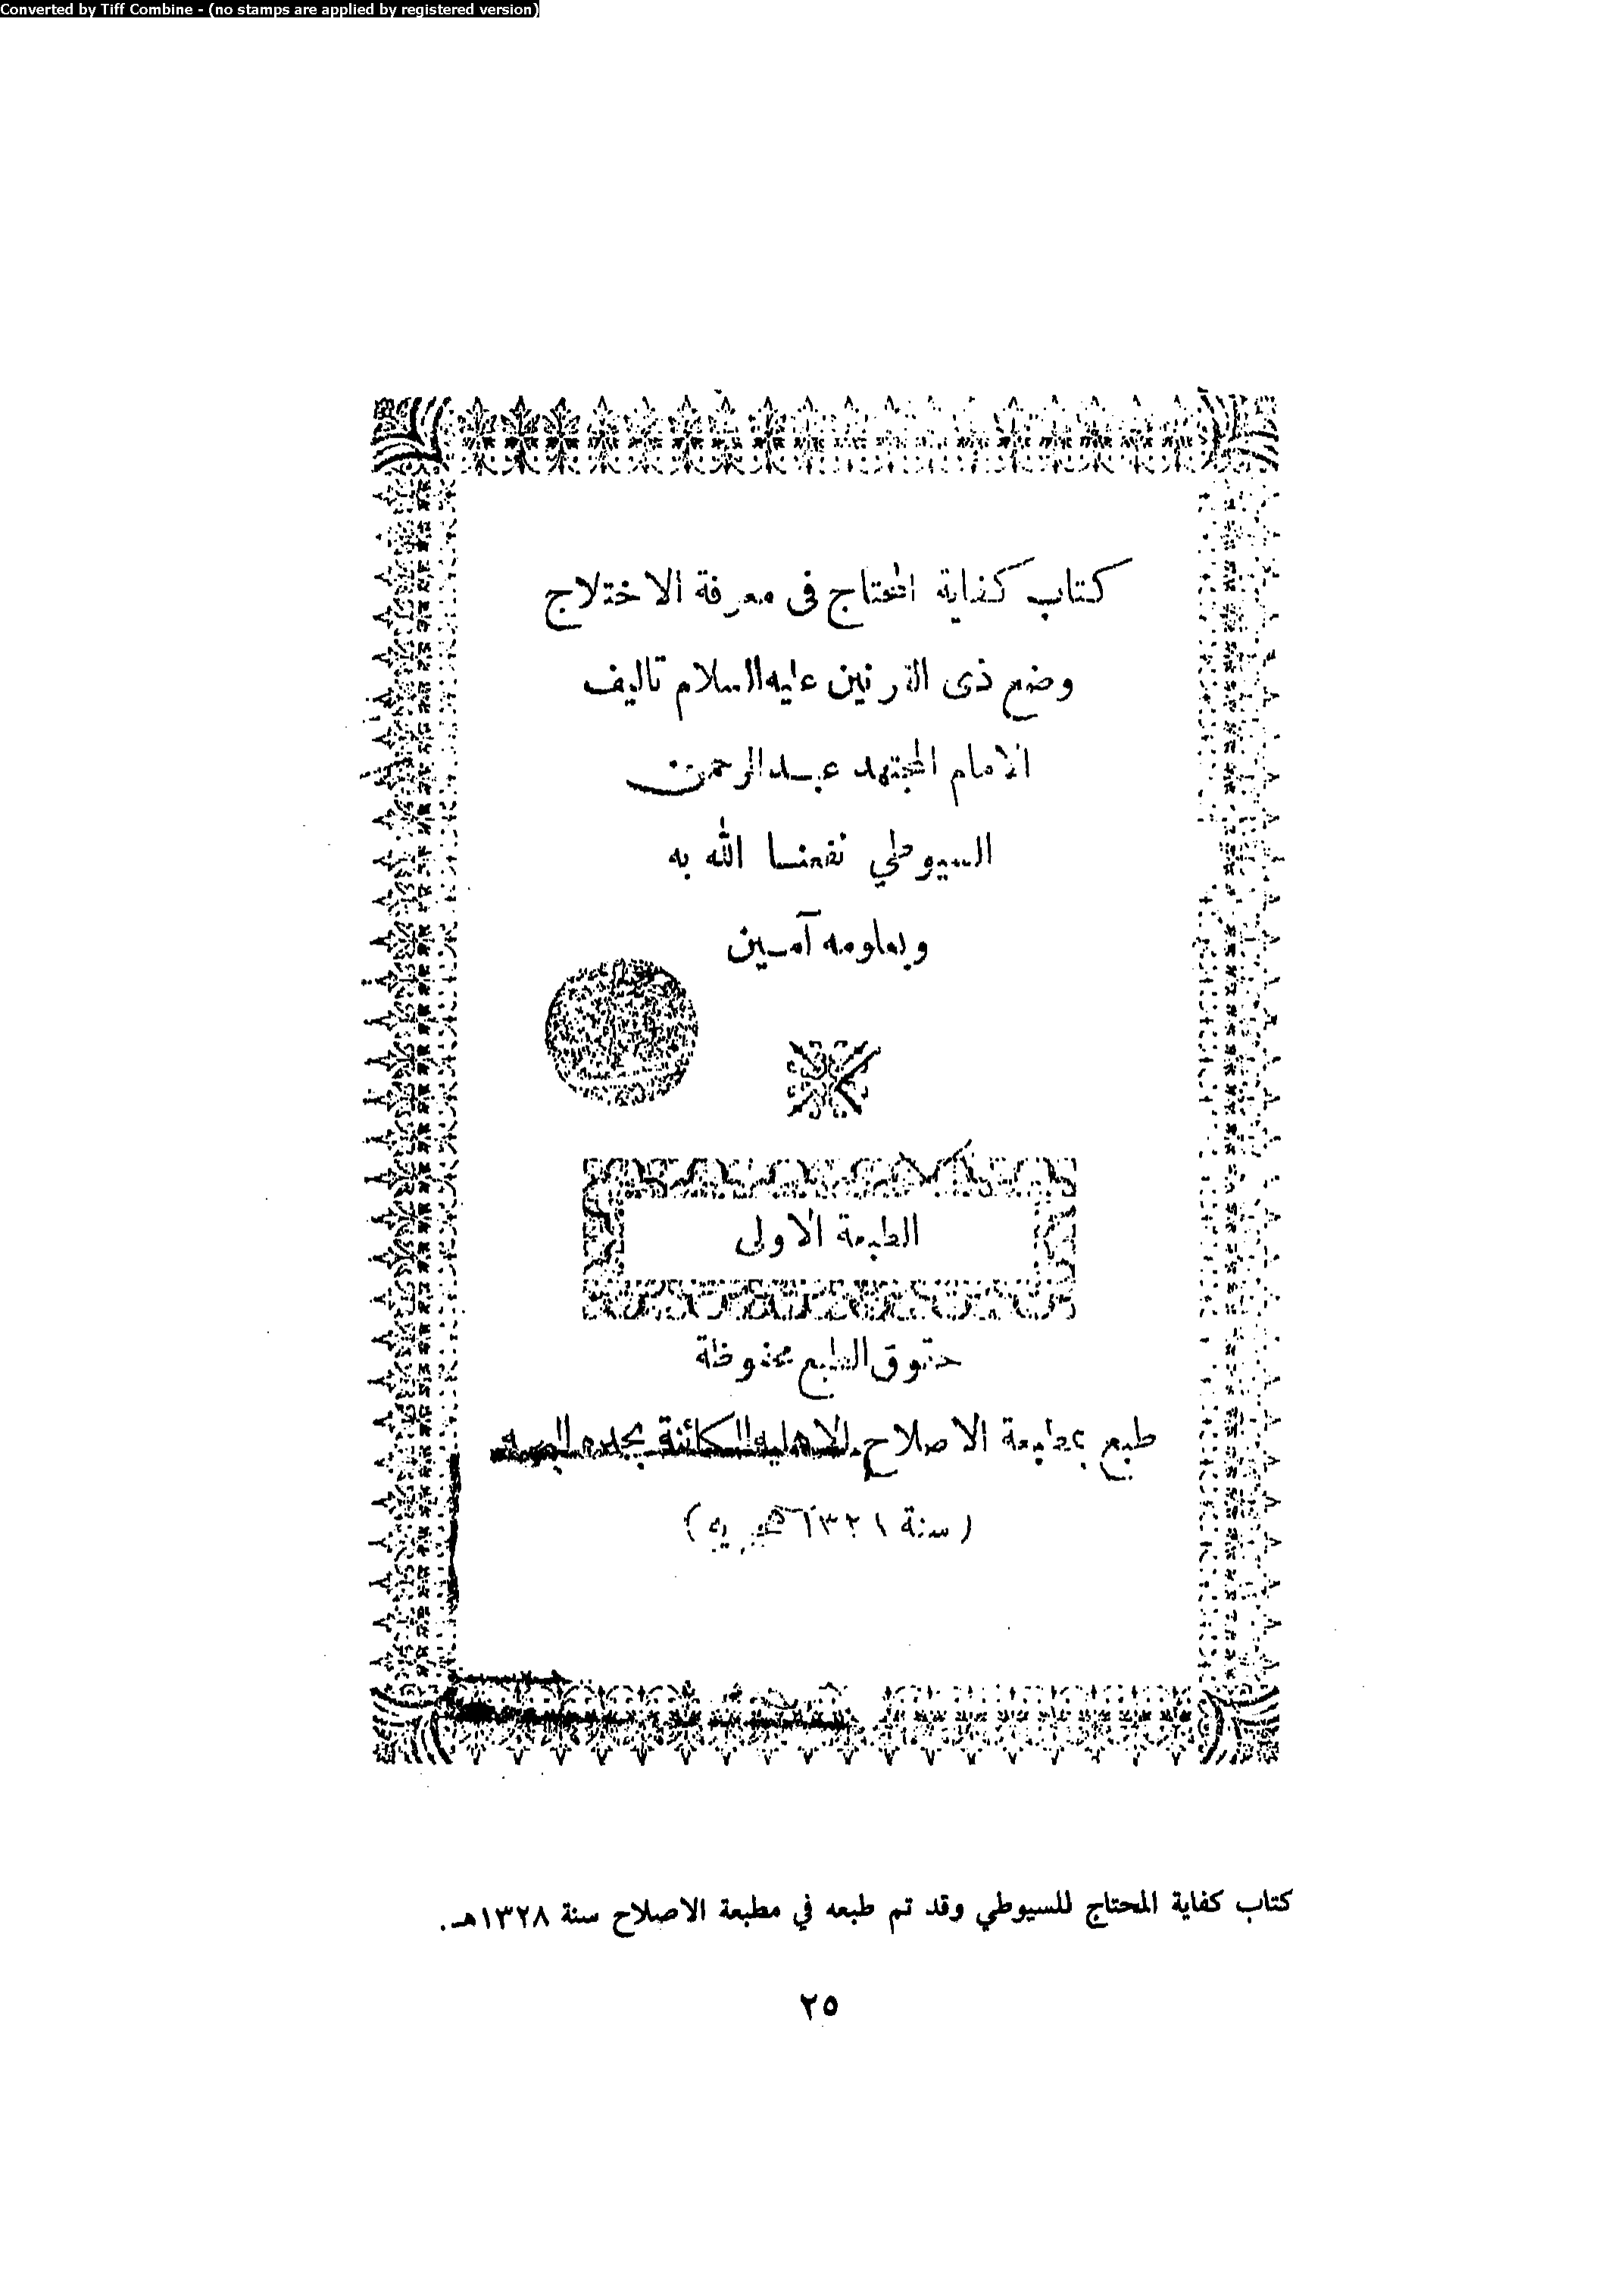 Converted by Tiff Combine - (no stamps are applied by registered version)
كتاب كفاية المحتاج فى معرفة الاختلاج
وضع ذى القرنين عليه السلام تاليف
الامام المجتهد عبد الرحمن
السيوطي نفعنا الله به
وبعلومه آمين
الطبعة الاولى
حقوق الطبع محفوظة
طبع بمطبعة الاصلاح الاهلية الكائنة بجده البهية
(سنة هجريه)
كتاب كفاية المحتاج للسيوطي وقد تم طبعه في مطبعة الاصلاح سنة ١٣٢٨هـ.
٢٥